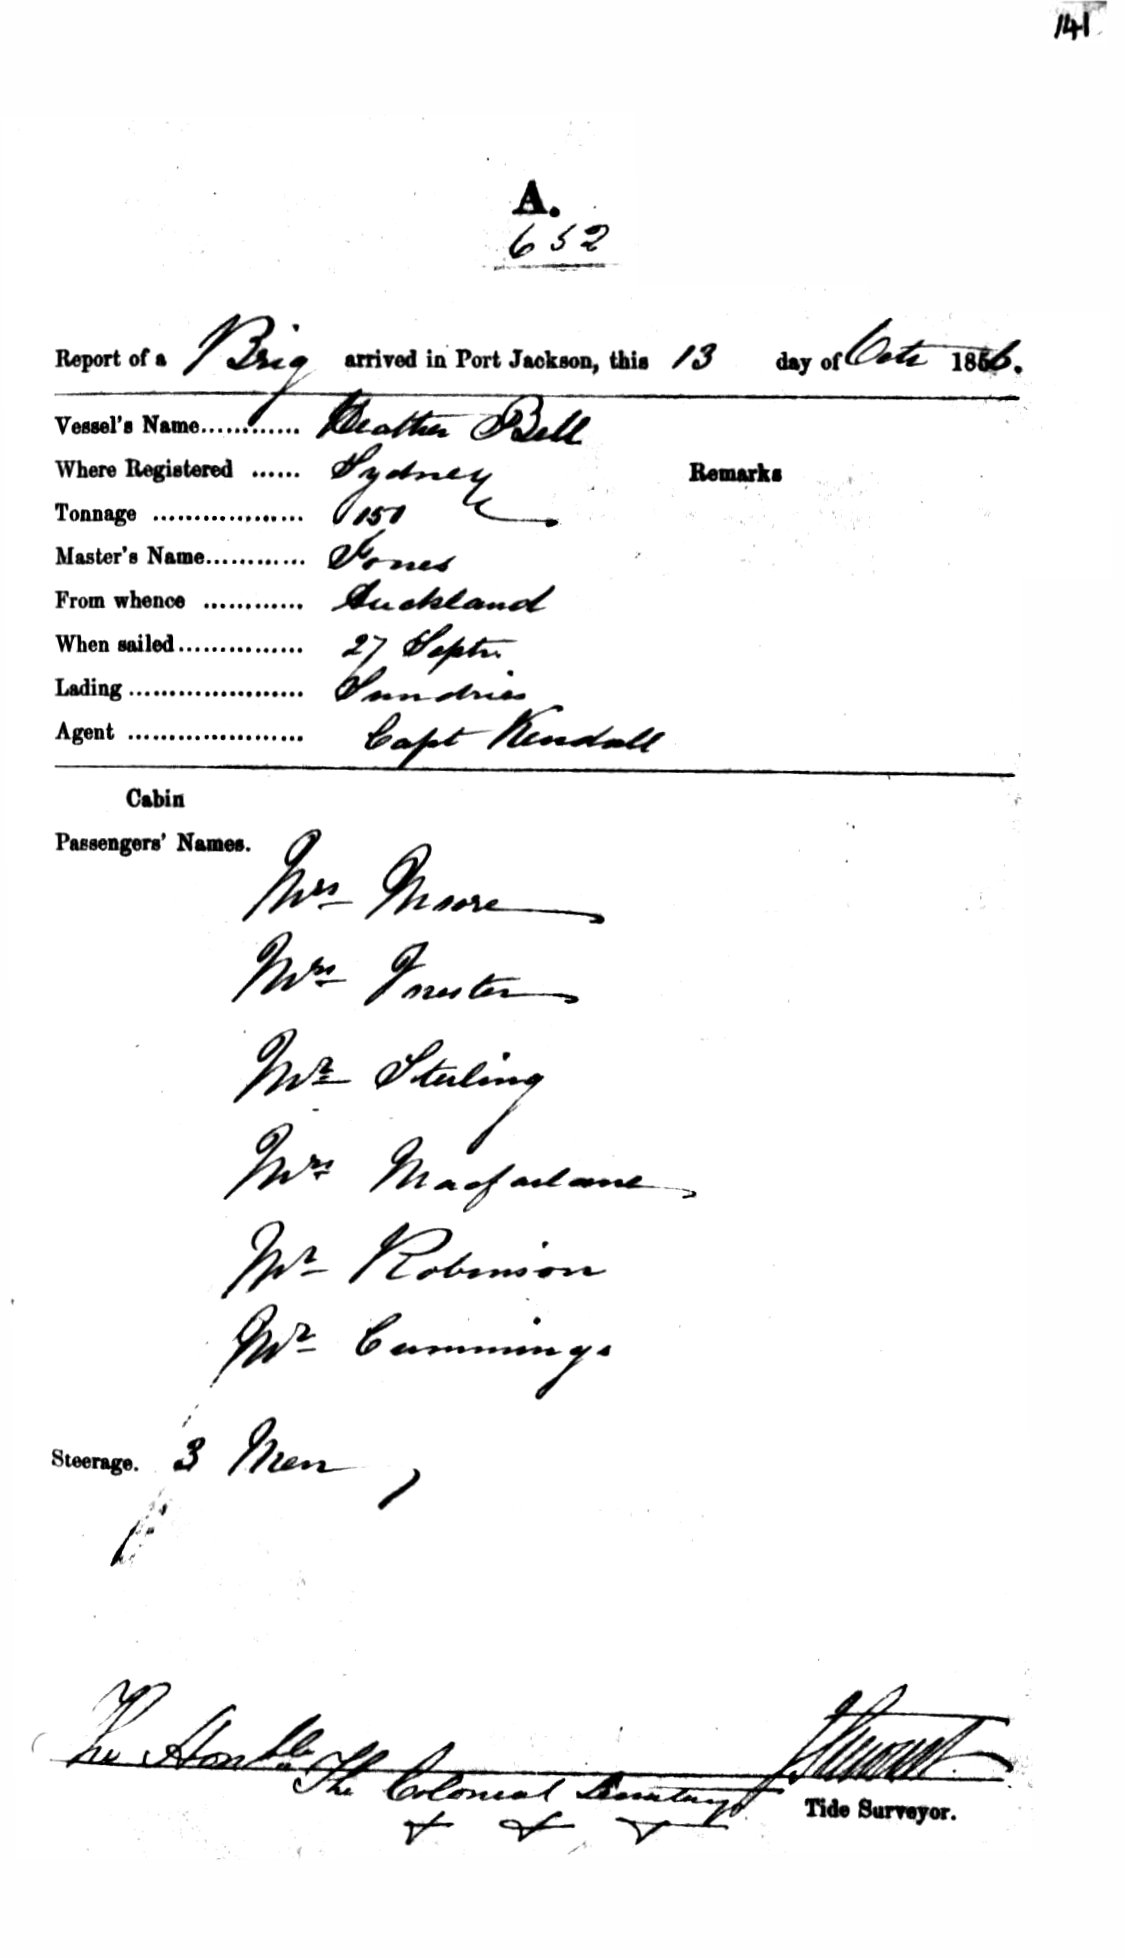 141
A.
652
Report of a Brig arrived in Port Jackson, this 13 day of Octr 1856.
Vessel's Name............ Heather Bell
Where Registered ...... Sydney
Remarks
Tonnage .................. 151
Master's Name............ Jones
From whence ............ Auckland
When sailed............... 27 Septr.
Lading ..................... Sundries
Agent ..................... Capt Kendall
Cabin
Passengers' Names.
Mrs Moore
Mrs Forster
Mr Sterling
Mrs Macfarlane
Mr Robinson
Mr Cummings
Steerage. 3 Men
The Honble
The Colonial Secretary
Tide Surveyor.